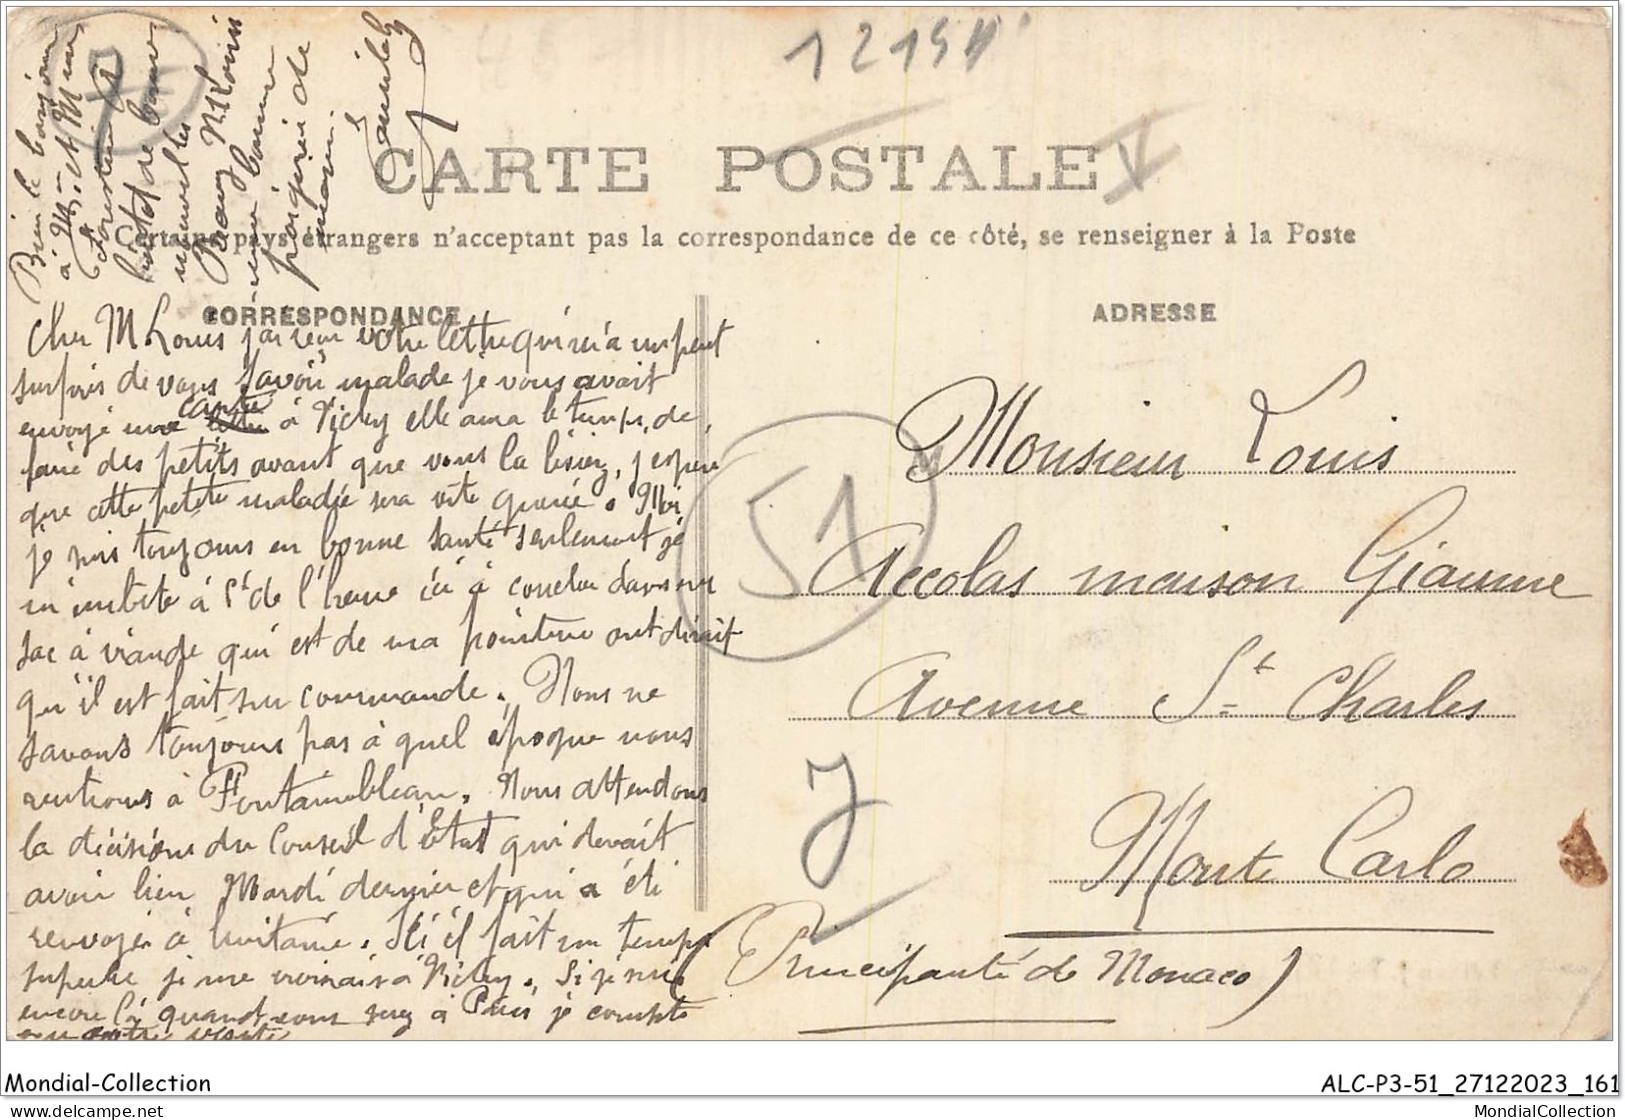 12151
Bien le bonjour
à M. et Mme
et de bonnes
nouvelles
Beaux M Louis
une bonne
poignée de
main.
CARTE POSTALE
Certains pays étrangers n'acceptent pas la correspondance de ce côté, se renseigner à la Poste
CORRESPONDANCE
ADRESSE
Cher M Louis j'ai reçu votre lettre qui m'a un peut
surpris de vous savoir malade je vous avait
envoyé une carte à Vichy elle aura le temps de
faire des petits avant que vous la lisiez, j'espère
que cette petite maladie sera vite guérie. Moi
je suis toujours en bonne santé seulement je
m'embête à l'heure ici à coucher dans un
sac à viande qui est de ma pointure ont dirait
qu'il est fait sur commande. Nous ne
savons toujours pas à quel époque nous
rentrons à Fontainebleau. Nous attendons
la décisions du Conseil d'Etat qui devait
avoir lieu Mardi dernier et qui a été
renvoyé à huitaine. Ici il fait un temps
superbe je me croirais à Vichy. Si je suis
encore là quand vous serez à Paris je compte
sur votre visite
Monsieur Louis
Accolas maison Giaume
Avenue St Charles
Monte Carlo
(Principauté de Monaco)
51
J
Mondial-Collection
ALC-P3-51_27122023_161
www.delcampe.net
MondialCollection